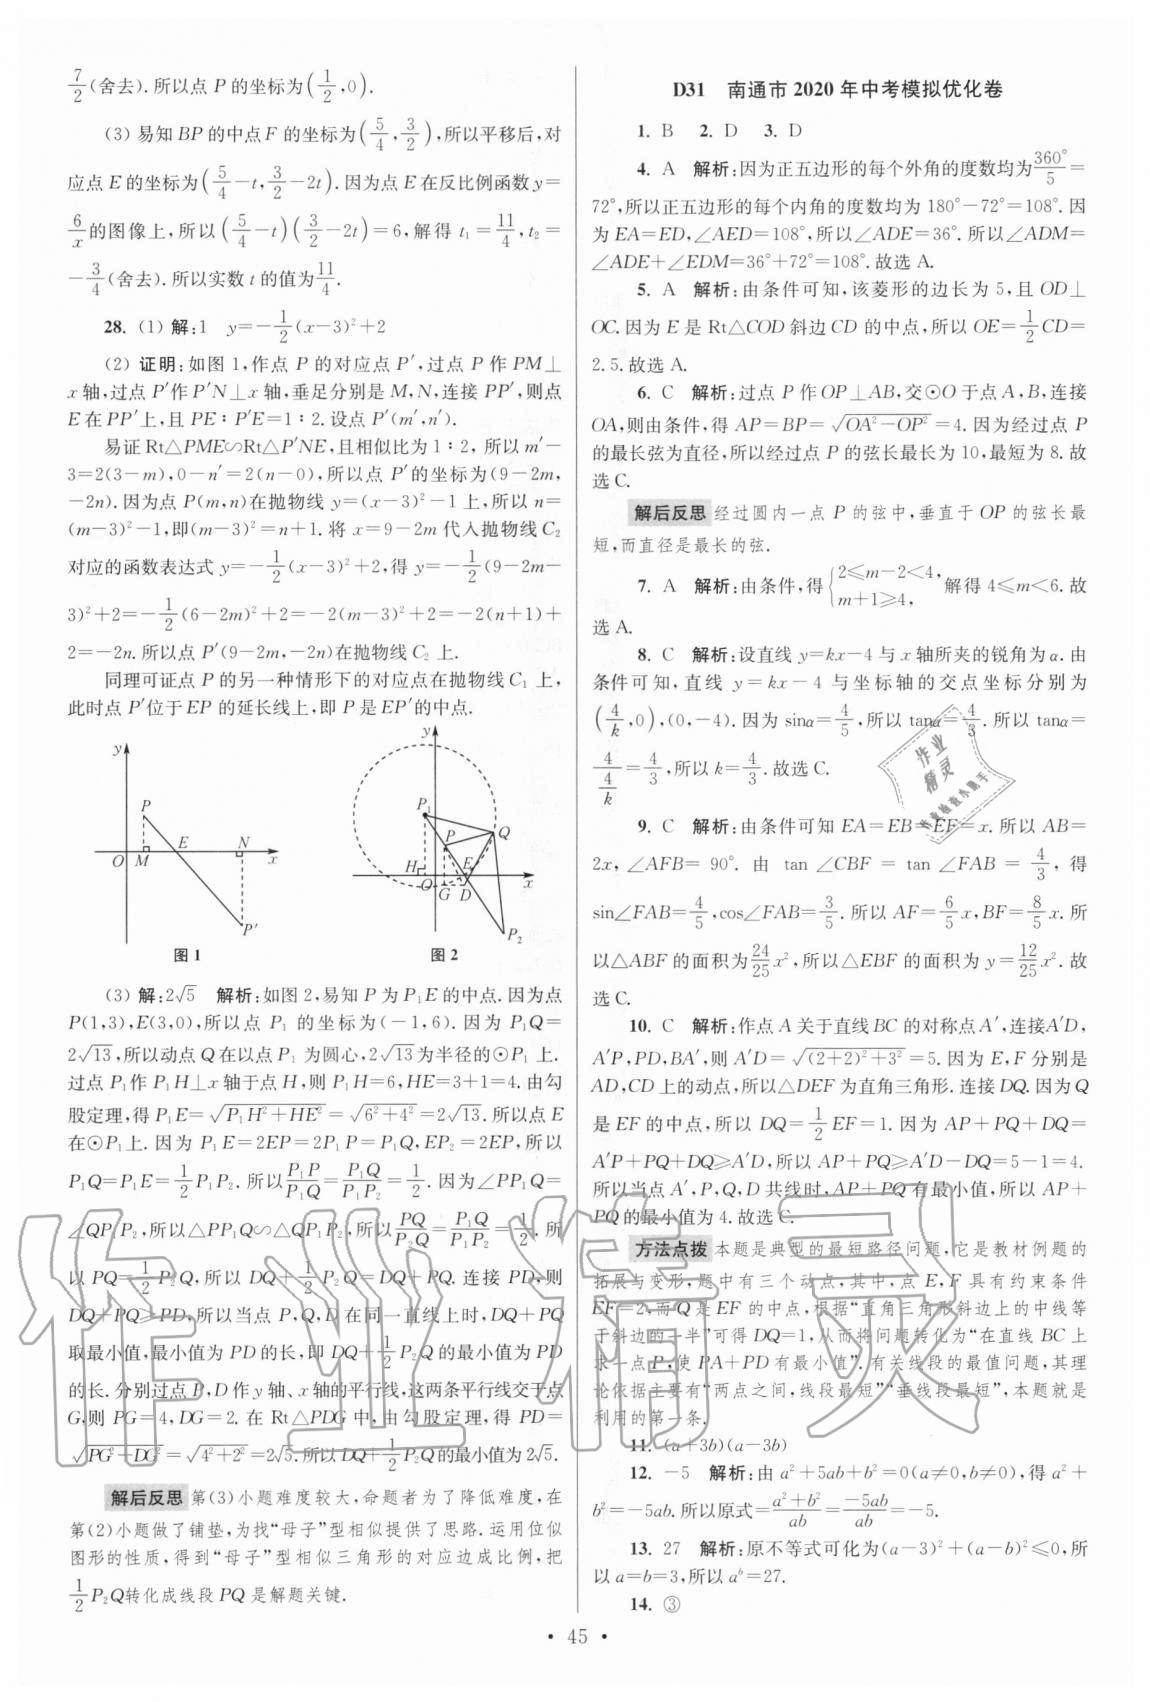 7/2(舍去).所以点 P 的坐标为(1/2,0).
(3) 易知 BP 的中点 F 的坐标为(5/4,3/2),所以平移后,对
应点 E 的坐标为(5/4-t,3/2-2t).因为点 E 在反比例函数 y=
6/x的图像上,所以(5/4-t)(3/2-2t)=6,解得 t₁=11/4,t₂=
-3/4(舍去).所以实数 t 的值为11/4.
28. (1) 解:1 y=-1/2(x-3)²+2
(2) 证明:如图 1,作点 P 的对应点 P′,过点 P 作 PM⊥
x 轴,过点 P′作 P′N⊥x 轴,垂足分别是 M,N,连接 PP′,则点
E 在 PP′上,且 PE∶P′E=1∶2.设点 P′(m′,n′).
易证 Rt△PME∽Rt△P′NE,且相似比为 1∶2,所以 m′-
3=2(3-m),0-n′=2(n-0),所以点 P′的坐标为(9-2m,
-2n).因为点 P(m,n)在抛物线 y=(x-3)²-1 上,所以 n=
(m-3)²-1,即(m-3)²=n+1.将 x=9-2m 代入抛物线 C₂
对应的函数表达式 y=-1/2(x-3)²+2,得 y=-1/2(9-2m-
3)²+2=-1/2(6-2m)²+2=-2(m-3)²+2=-2(n+1)+
2=-2n.所以点 P′(9-2m,-2n)在抛物线 C₂ 上.
同理可证点 P 的另一种情形下的对应点在抛物线 C₁ 上,
此时点 P′位于 EP 的延长线上,即 P 是 EP′的中点.
y P E N O M x P′
图 1
y P₁ P Q H E O G D x P₂
图 2
(3) 解:2√5 解析:如图 2,易知 P 为 P₁E 的中点.因为点
P(1,3),E(3,0),所以点 P₁ 的坐标为(-1,6).因为 P₁Q=
2√13,所以动点 Q 在以点 P₁ 为圆心,2√13为半径的⊙P₁ 上.
过点 P₁作 P₁H⊥x 轴于点 H,则 P₁H=6,HE=3+1=4.由勾
股定理,得 P₁E=√(P₁H²+HE²)=√(6²+4²)=2√13.所以点 E
在⊙P₁上.因为 P₁E=2EP=2P₁P=P₁Q,EP₂=2EP,所以
P₁Q=P₁E=1/2P₁P₂.所以P₁P/P₁Q=P₁Q/P₁P₂=1/2.因为∠PP₁Q=
∠QP₁P₂,所以△PP₁Q∽△QP₁P₂,所以PQ/P₂Q=P₁Q/P₁P₂=1/2.所
以 PQ=1/2P₂Q,所以 DQ+1/2P₂Q=DQ+PQ.连接 PD,则
DQ+PQ≥PD,所以当点 P,Q,D 在同一直线上时,DQ+PQ
取最小值,最小值为 PD 的长,即 DQ+1/2P₂Q 的最小值为 PD
的长.分别过点 P,D 作 y 轴、x 轴的平行线,这两条平行线交于点
G,则 PG=4,DG=2.在 Rt△PDG 中,由勾股定理,得 PD=
√(PG²+DG²)=√(4²+2²)=2√5.所以 DQ+1/2P₂Q 的最小值为 2√5.
解后反思 第(3)小题难度较大,命题者为了降低难度,在
第(2)小题做了铺垫,为找“母子”型相似提供了思路.运用位似
图形的性质,得到“母子”型相似三角形的对应边成比例,把
1/2P₂Q转化成线段 PQ 是解题关键.
D31 南通市 2020 年中考模拟优化卷
1. B 2. D 3. D
4. A 解析:因为正五边形的每个外角的度数均为360°/5=
72°,所以正五边形的每个内角的度数均为 180°-72°=108°.因
为 EA=ED,∠AED=108°,所以∠ADE=36°.所以∠ADM=
∠ADE+∠EDM=36°+72°=108°.故选 A.
5. A 解析:由条件可知,该菱形的边长为 5,且 OD⊥
OC.因为 E 是 Rt△COD 斜边 CD 的中点,所以 OE=1/2CD=
2.5.故选 A.
6. C 解析:过点 P 作 OP⊥AB,交⊙O 于点 A,B,连接
OA,则由条件,得 AP=BP=√(OA²-OP²)=4.因为经过点 P
的最长弦为直径,所以经过点 P 的弦长最长为 10,最短为 8.故
选 C.
解后反思 经过圆内一点 P 的弦中,垂直于 OP 的弦长最
短,而直径是最长的弦.
7. A 解析:由条件,得{2≤m-2<4, m+1≥4, 解得 4≤m<6.故
选 A.
8. C 解析:设直线 y=kx-4 与 x 轴所夹的锐角为 α.由
条件可知,直线 y=kx-4 与坐标轴的交点坐标分别为
(4/k,0),(0,-4).因为 sinα=4/5,所以 tanα=4/3.所以 tanα=
4/(4/k)=4/3,所以 k=4/3.故选 C.
9. C 解析:由条件可知 EA=EB=EF=x.所以 AB=
2x,∠AFB=90°.由 tan∠CBF=tan∠FAB=4/3,得
sin∠FAB=4/5,cos∠FAB=3/5.所以 AF=6/5x,BF=8/5x.所
以△ABF 的面积为24/25x²,所以△EBF 的面积为 y=12/25x².故
选 C.
10. C 解析:作点 A 关于直线 BC 的对称点 A′,连接A′D,
A′P,PD,BA′,则 A′D=√((2+2)²+3²)=5.因为 E,F 分别是
AD,CD 上的动点,所以△DEF 为直角三角形.连接 DQ.因为 Q
是 EF 的中点,所以 DQ=1/2EF=1.因为 AP+PQ+DQ=
A′P+PQ+DQ≥A′D,所以 AP+PQ≥A′D-DQ=5-1=4.
所以当点 A′,P,Q,D 共线时,AP+PQ 有最小值,所以 AP+
PQ的最小值为 4.故选 C.
方法点拨 本题是典型的最短路径问题,它是教材例题的
拓展与变形,题中有三个动点,其中,点 E,F 具有约束条件
EF=2,而 Q 是 EF 的中点,根据“直角三角形斜边上的中线等
于斜边的一半”可得 DQ=1,从而将问题转化为“在直线 BC 上
求一点 P,使 PA+PD 有最小值”.有关线段的最值问题,其理
论依据主要有“两点之间,线段最短”“垂线段最短”,本题就是
利用的第一条.
11. (a+3b)(a-3b)
12. -5 解析:由 a²+5ab+b²=0(a≠0,b≠0),得 a²+
b²=-5ab.所以原式=(a²+b²)/ab=-5ab/ab=-5.
13. 27 解析:原不等式可化为(a-3)²+(a-b)²≤0,所
以 a=b=3,所以 aᵇ=27.
14. ③
• 45 •
作业精灵
作业
精灵